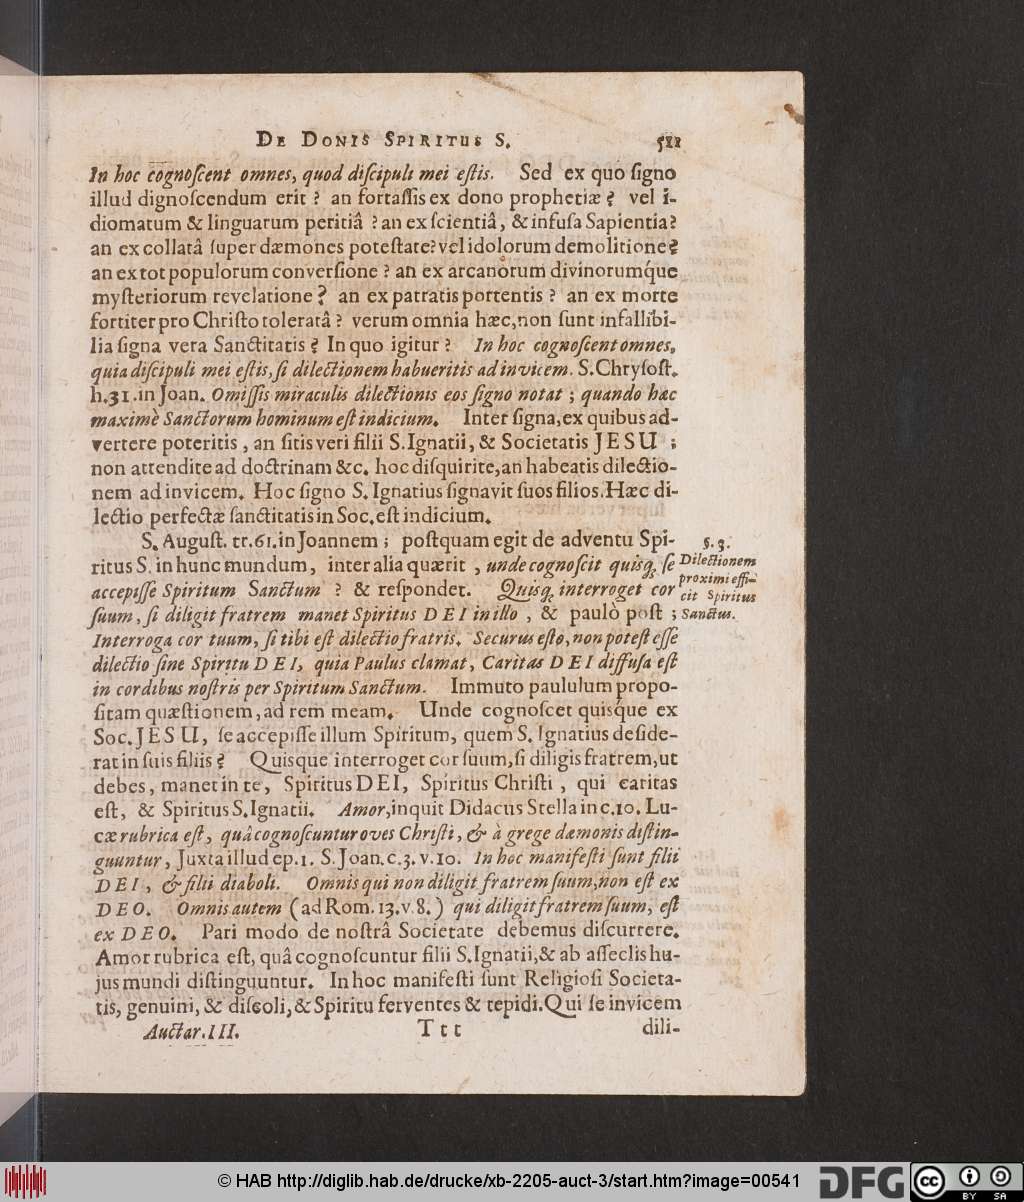 DE DONIS SPIRITUS S. 511
In hoc cognoſcent omnes, quod diſcipuli mei eſtis. Sed ex quo ſigno
illud dignoſcendum erit ? an fortaſſis ex dono prophetiæ ? vel i-
diomatum & linguarum peritiâ ? an ex ſcientiâ, & infuſa Sapientia?
an ex collatâ ſuper dæmones poteſtate? vel idolorum demolitione?
an ex tot populorum converſione ? an ex arcanorum divinorumq́ue
myſteriorum revelatione ? an ex patratis portentis ? an ex morte
fortiter pro Chriſto toleratâ ? verum omnia hæc, non ſunt infallibi-
lia ſigna vera Sanctitatis ? In quo igitur ? In hoc cognoſcent omnes,
quia diſcipuli mei eſtis, ſi dilectionem habueritis ad invicem. S. Chryſoſt.
h. 31. in Joan. Omiſſis miraculis dilectionis eos ſigno notat ; quando hæc
maximè Sanctorum hominum eſt indicium. Inter ſigna, ex quibus ad-
vertere poteritis, an ſitis veri filii S. Ignatii, & Societatis JESU ;
non attendite ad doctrinam &c. hoc diſquirite, an habeatis dilectio-
nem ad invicem. Hoc ſigno S. Ignatius ſignavit ſuos filios. Hæc di-
lectio perfectæ ſanctitatis in Soc. eſt indicium.
S. Auguſt. tr. 61. in Joannem ; poſtquam egit de adventu Spi-
ritus S. in hunc mundum, inter alia quærit, unde cognoſcit quisq; ſe
accepiſſe Spiritum Sanctum ? & reſpondet. Quisq; interroget cor
ſuum, ſi diligit fratrem manet Spiritus DEI in illo, & paulò poſt ;
Interroga cor tuum, ſi tibi eſt dilectio fratris. Securus eſto, non poteſt eſſe
dilectio ſine Spiritu DEI, quia Paulus clamat, Caritas DEI diffuſa eſt
in cordibus noſtris per Spiritum Sanctum. Immuto paululum propo-
ſitam quæſtionem, ad rem meam. Unde cognoſcet quisq́ue ex
Soc. JESU, ſe accepiſſe illum Spiritum, quem S. Ignatius deſide-
rat in ſuis filiis ? Quisque interroget cor ſuum, ſi diligis fratrem, ut
debes, manet in te, Spiritus DEI, Spiritus Chriſti, qui caritas
eſt, & Spiritus S. Ignatii. Amor, inquit Didacus Stella in c. 10. Lu-
cæ rubrica eſt, quâ cognoſcuntur oves Chriſti, & à grege dæmonis diſtin-
guuntur, Juxta illud ep. 1. S. Joan. c. 3. v. 10. In hoc manifeſti ſunt filii
DEI, & filii diaboli. Omnis qui non diligit fratrem ſuum, non eſt ex
DEO. Omnis autem (ad Rom. 13. v. 8.) qui diligit fratrem ſuum, eſt
ex DEO. Pari modo de noſtrâ Societate debemus diſcurrere.
Amor rubrica eſt, quâ cognoſcuntur filii S. Ignatii, & ab aſſeclis hu-
jus mundi diſtinguuntur. In hoc manifeſti ſunt Religioſi Societa-
tis, genuini, & diſcoli, & Spiritu ferventes & tepidi. Qui ſe invicem
Auctar. III. Ttt dili-
§. 3.
Dilectionem
proximi effi-
cit Spiritus
Sanctus.
© HAB http://diglib.hab.de/drucke/xb-2205-auct-3/start.htm?image=00541
DFG
cc BY SA